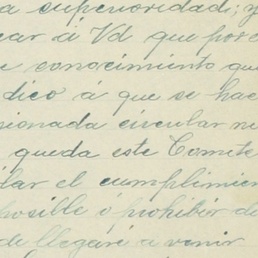 a superioridad; y
car á Vd que por c
e conocimiento que
dico á que se hac
sionada circular no
queda este Comite
dar el cumplimien
posible ó prohibir de
de llegará a venir